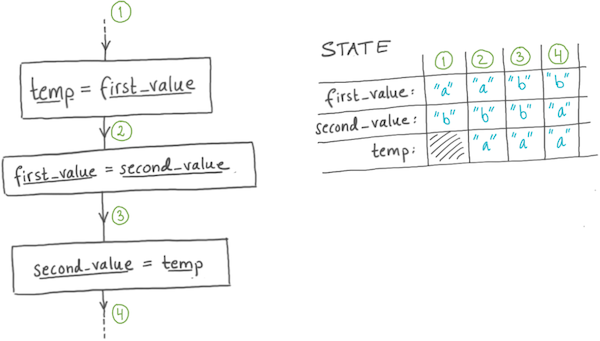 1
temp = first_value
2
first_value = second_value
3
second_value = temp
4
STATE
1 2 3 4
first_value: "a" "a" "b" "b"
second_value: "b" "b" "b" "a"
temp: "a" "a" "a"